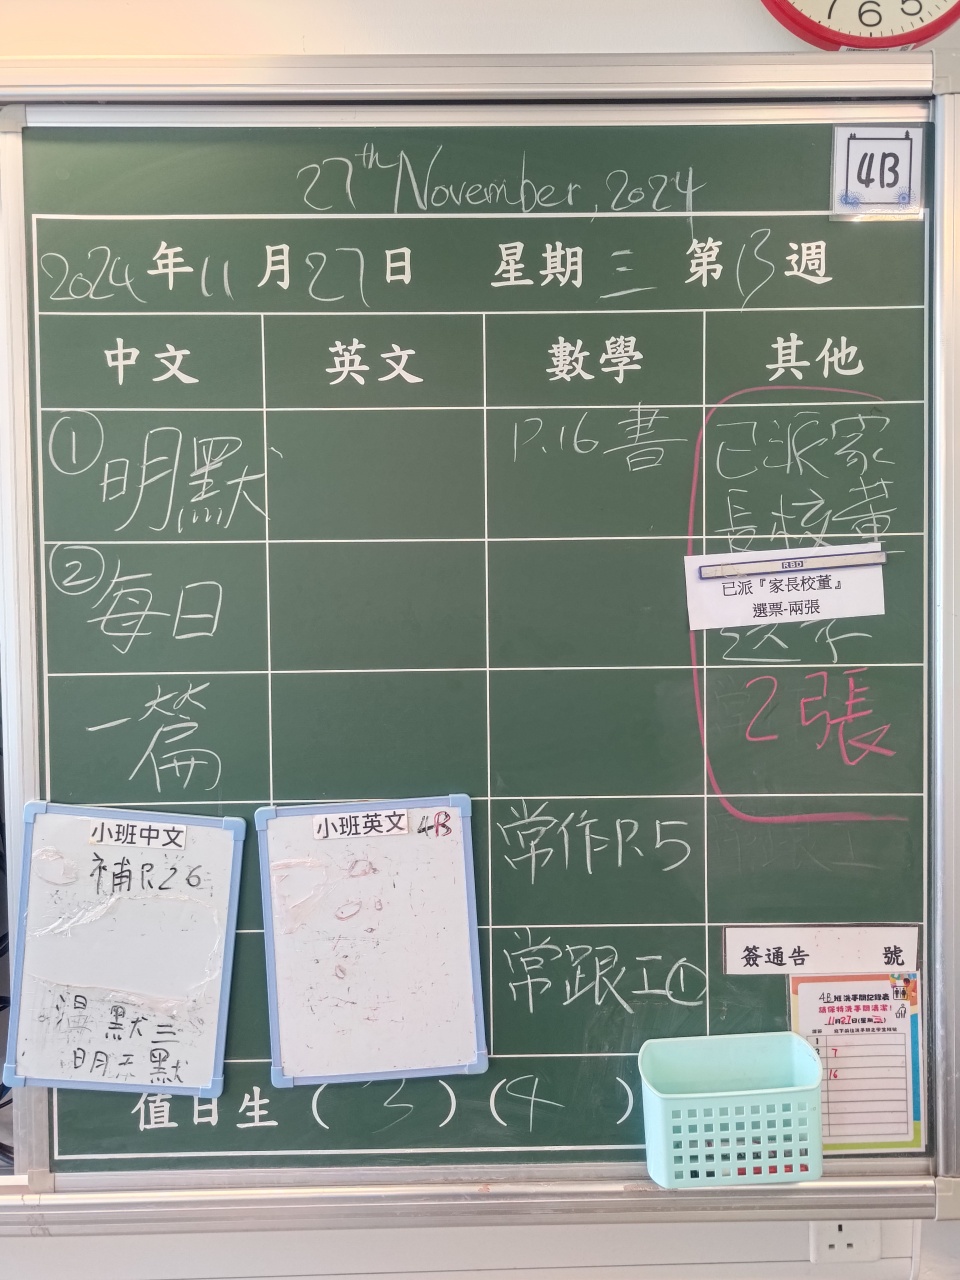 7 6 5
27th November, 2024
4B
2024年11月27日 星期三 第13週
中文 英文 數學 其他
①明默
②每日
一篇
P.16 書
常作P.5
常跟工①
已派家
長校董
RBD
已派『家長校董』
選票-兩張
2張
小班中文
補P.26
默三
明 默
小班英文 4B
簽通告 號
4B班洗手間記錄表
請保持洗手間清潔！
11月27日(星期三)
1
7
16
值日生 ( 3 ) ( 4 )